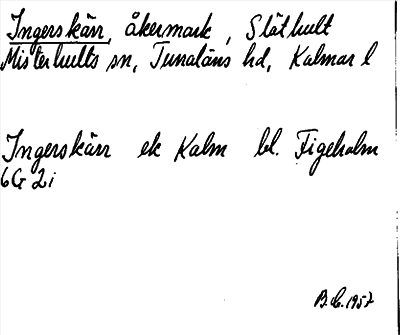 Ingerskärr, åkermark, Släthult
Misterhults sn, Tunaläns hd, Kalmar l
Ingerskärr ek Kalm bl. Figeholm
6G 2i
1957